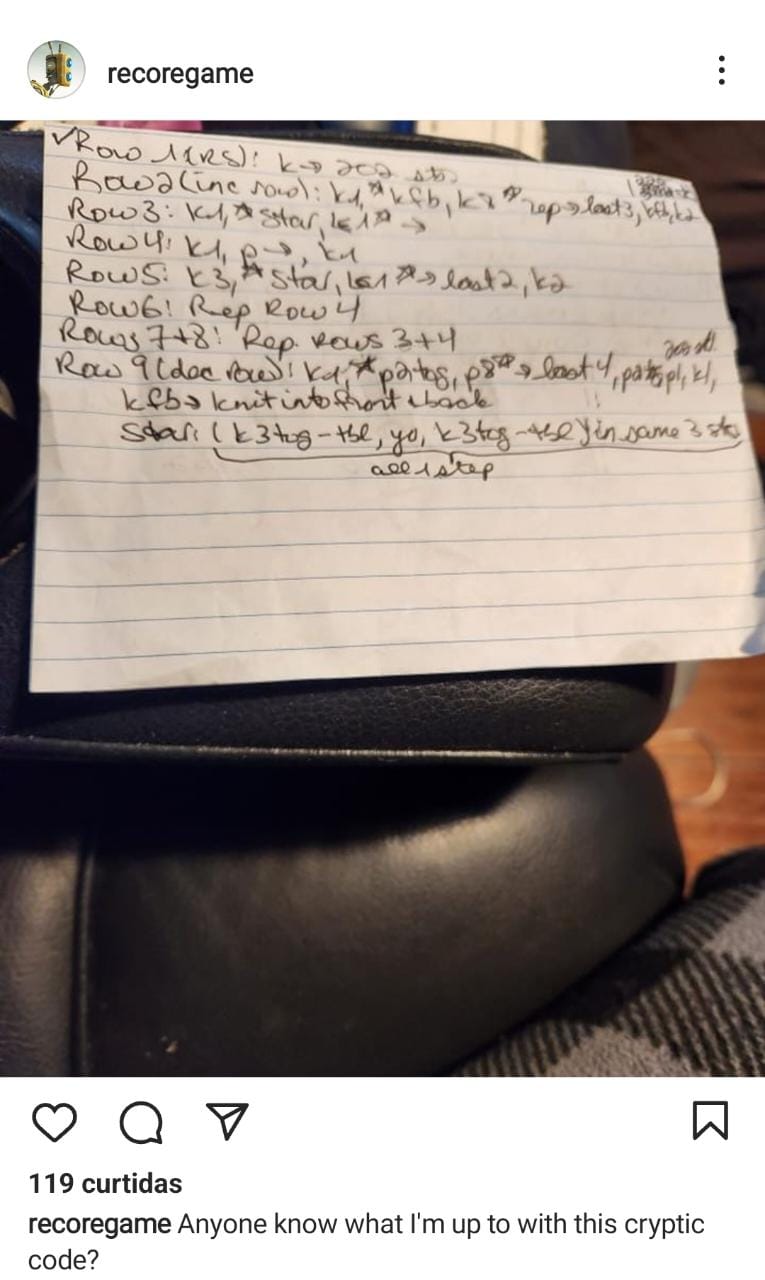 recoregame
✓Row 1(RS): k→ 202 sts
Row2(inc row): k1,*kfb, k8* rep→last3, kfb,k2
Row3: k1,*star, k1*→
Row4: k1, p→, k1
Row5: k3,*star, k1*→last2, k2
Row6: Rep Row 4
Rows 7+8: Rep. rows 3+4
202 st.
Row 9(dec row): k1,*p2tog, p8*→last4, p2tog p1, k1,
kfb→ knit into front & back
Star: (k3tog-tbl, yo, k3tog-tbl) in same 3 sts
all 1 step
119 curtidas
recoregame Anyone know what I'm up to with this cryptic
code?